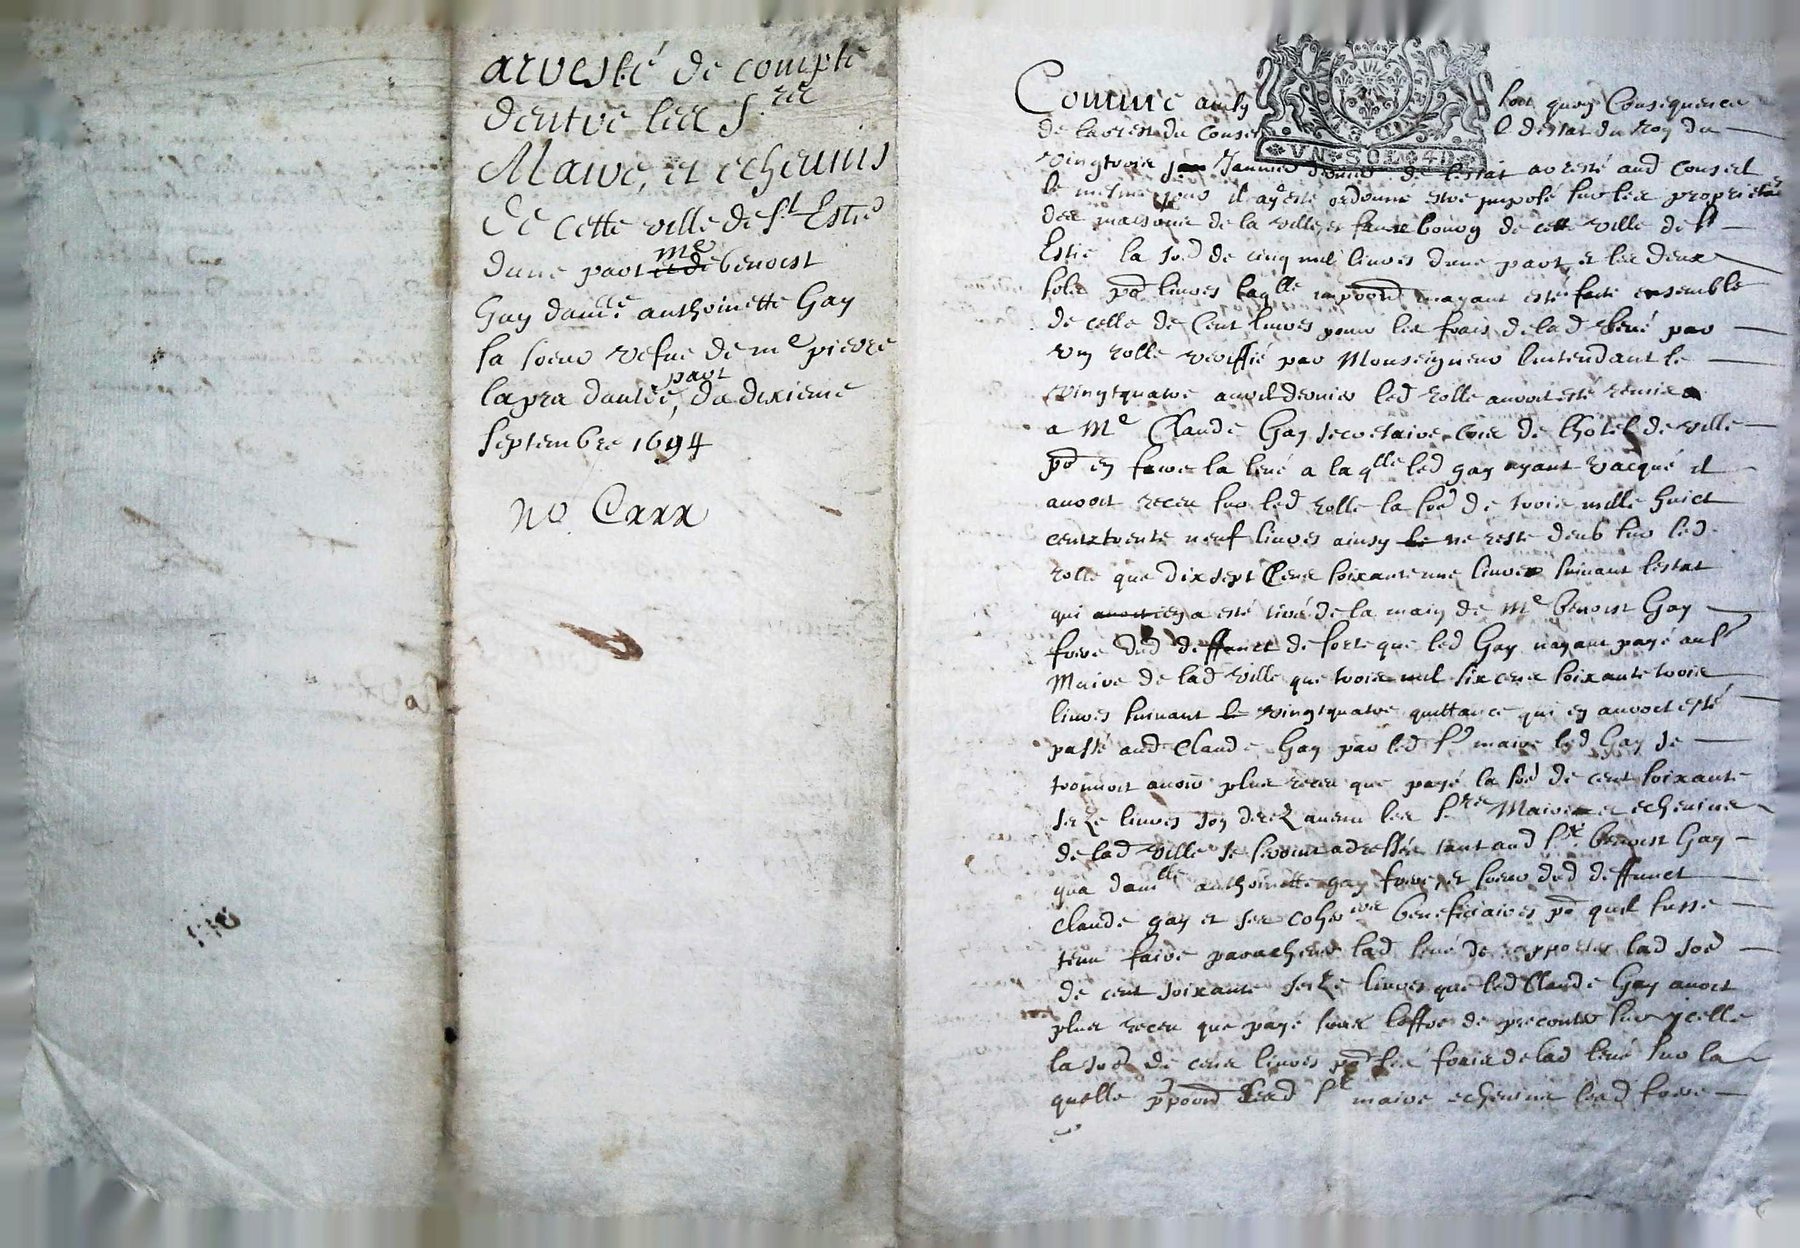 arresté de compte
d'entre les Srs
Maire, et echevins
De cette ville de St Estne
dune part me et de benoist
Gay damlle anthoinette Gay
sa soeur vefue de me pierre
lapra dautre, part du dixieme
septembre 1694
no Cxxx
Comme ainsy soit quen Consequence
de larrest du Conseil destat du Roy du
vingtrois jan Janvier dernier de lestat arresté aud conseil
le mesme jour il ayt esté ordonné estre imposé sur les proprietres
des maisons de la ville et faux bourg de cette ville de St
Estne la sod de cinq mil livres dune part, et les deux
sols po livres laqlle impoon nayant esté faite ensemble
de celle de Cent livres pour les frais de lad levé par
un rolle veriffié par Monseigneur lintendant le
vingtquatre avril dernier led rolle auroit esté remis
a Me Claude Gay secretaire de lhotel de ville
po en faire la levé a laqlle led gay ayant vacqué il
auroit receu sur led rolle la sod de trois mille huict
cent trente neuf livres ainsy le ne reste deub sur led
rolle que dix sept Cens soixante une livres suivant lestat
qui auroit en a esté tiré de la main de Me benoist Gay
frere dud deffunct de sorte que led Gay nayant payé au Sr
Maire de lad ville que trois mil six cens soixante trois
livres suivant le vingtquatre quittance qui en auroit esté
passé aud Claude Gay par led Sr maire led Gay se
trouvoit avoir plus receu que payé la sod de cent soixante
seize livres les Srs Maire et echevins
de lad ville se seroint adressés tant aud Sr benoist Gay
qua damlle anthoinette gay frere, et soeur dud deffunct
Claude gay et ses beneficiaires po quil fusse
tenu faire parachever lad levé de rapporter lad sod
de cent soixante seize livres que led Claude Gay avoit
plus receu que payé sous loffre de precompter sur ycelle
la sod de cens livres po les frais de lad levé sur la
quelle lesd Sr maire echevins